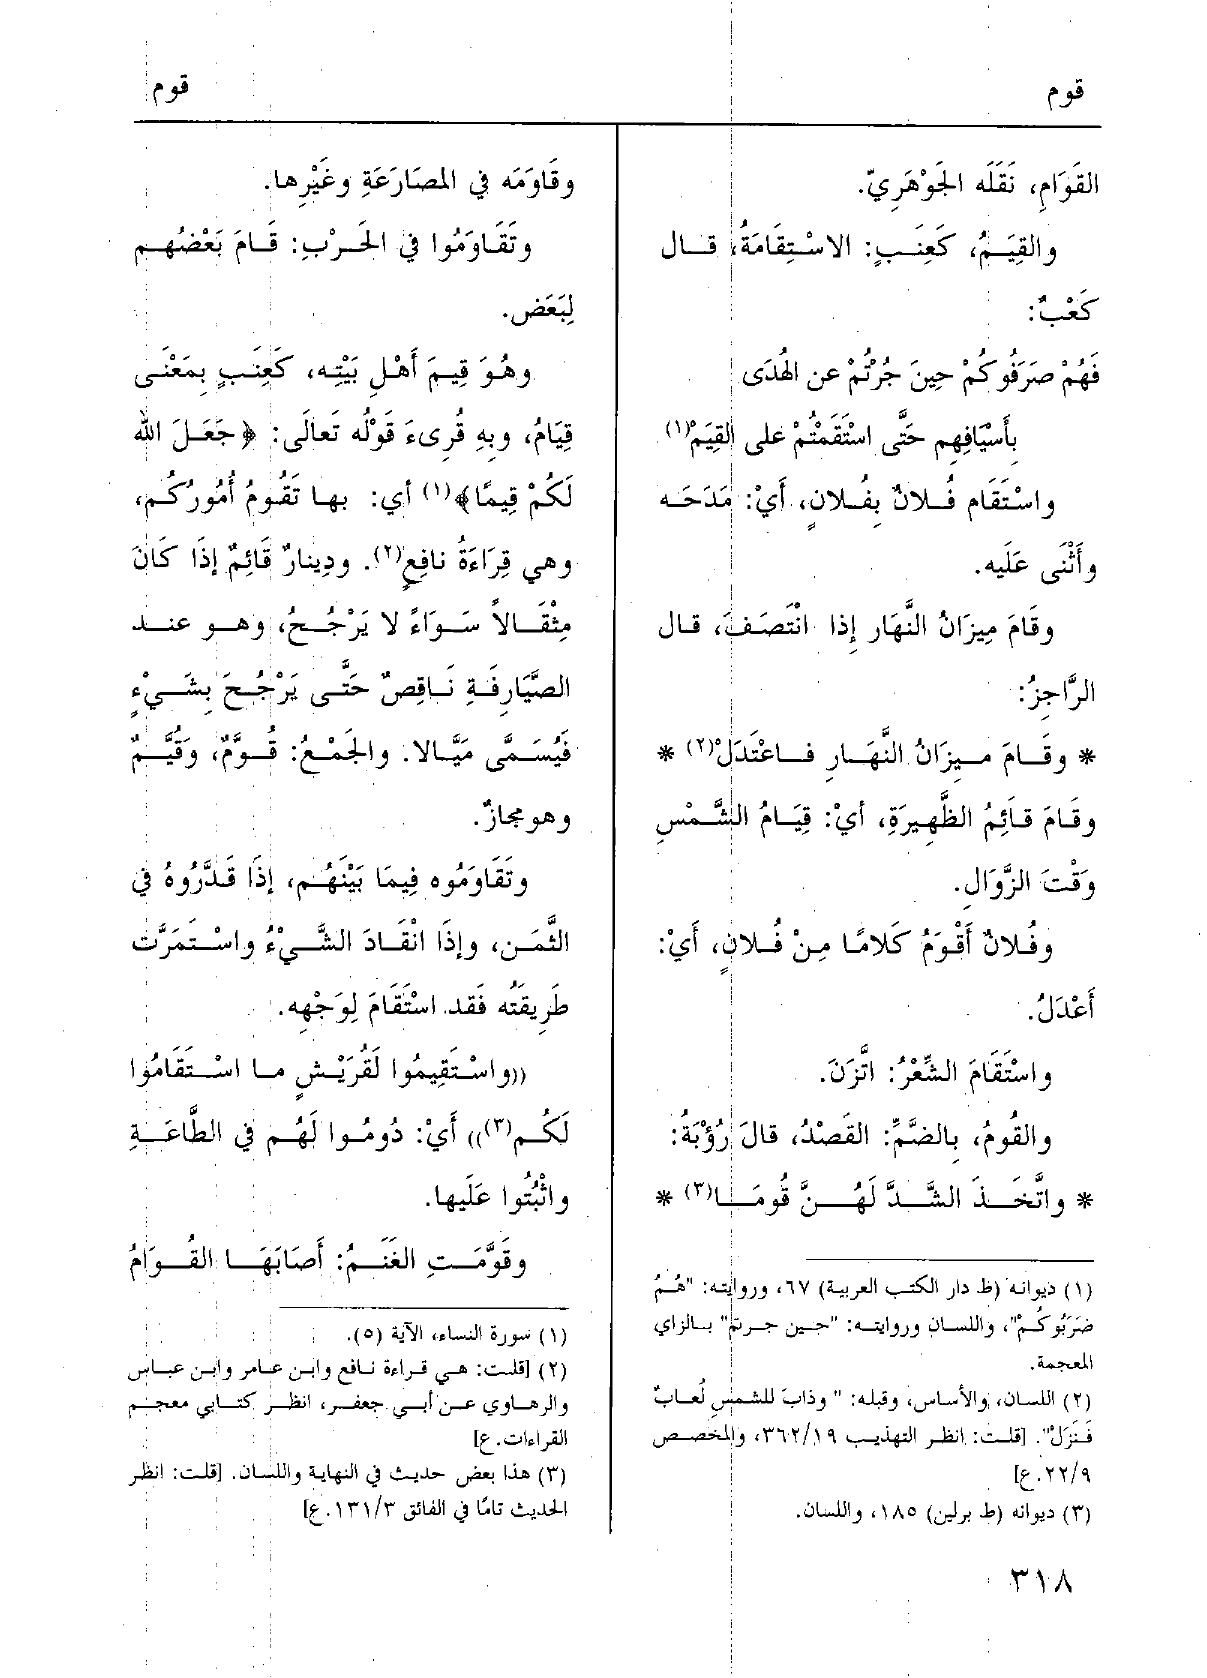 قوم
قوم
القَوَامِ، نَقَلَه الجَوْهَرِيّ.
والقِيَمُ، كَعِنَبٍ: الاسْتِقَامَةُ، قال
كَعْبٌ:
فَهُمْ صَرَفُوكُمْ حِينَ جُرْتُمْ عن الهُدَى
بِأَسْيَافِهِم حَتَّى اسْتَقَمْتُمْ على القِيَمْ(١)
واسْتَقَام فُلانٌ بِفُلانٍ، أَيْ: مَدَحَه
وأَثْنَى عَلَيه.
وقَامَ مِيزَانُ النَّهَار إِذا انْتَصَفَ، قال
الرَّاجِزُ:
* وقَامَ مِيزَانُ النَّهَارِ فاعْتَدَلْ(٢) *
وقَامَ قَائِمُ الظَّهِيرَةِ، أيْ: قِيَامُ الشَّمْسِ
وَقْتَ الزَّوَالِ.
وفُلانٌ أَقْوَمُ كَلامًا مِنْ فُلانٍ، أَيْ:
أَعْدَلُ.
واسْتَقَامَ الشِّعْرُ: اتَّزَنَ.
والقُومُ، بِالضَّمِّ: القَصْدُ، قالَ رُؤْبَةُ:
* واتَّخَذَ الشَّدَّ لَهُنَّ قُومَا(٣) *
(١) ديوانه (ظ دار الكتب العربية) ٦٧، وروايته: "هُمُ
ضَرَبُوكُمْ"، واللسان وروايته: "حين جرتم" بالزاي
المعجمة.
(٢) اللسان، والأساس، وقبله: "وذابَ للشمسِ لُعابٌ
فَنَزَلْ". [قلت: انظر التهذيب ٣٦٢/١٩، والمخصص
٢٢/٩.ع]
(٣) ديوانه (ط برلين) ١٨٥، واللسان.
وقَاوَمَه في المصَارَعَةِ وغَيْرِها.
وتَقَاوَمُوا في الحَرْبِ: قَامَ بَعْضُهُم
لِبَعَض.
وهُوَ قِيمَ أَهْلِ بَيْتِه، كَعِنَبٍ بِمَعْنَى
قِيَامُ، وبِهِ قُرِىءَ قَوْلُه تَعالَى: ﴿جَعَلَ الله
لَكُمْ قِيمًا﴾(١) أي: بها تَقُومُ أُمُورُكُم،
وهي قِرَاءَةُ نافِعٍ(٢). ودِينارٌ قَائِمٌ إِذَا كَانَ
مِثْقَالاً سَوَاءً لا يَرْجُحُ، وهو عند
الصَّيَارِفَةِ نَاقِصٌ حَتَّى يَرْجُحَ بِشَيْءٍ
فَيُسَمَّى مَيَّالا. والجَمْعُ: قُوَّمٌ، وَقُيَّمٌ
وهو مجازٌ.
وتَقَاوَمُوه فِيمَا بَيْنَهُم، إذَا قَدَّرُوهُ في
الثَّمَن، وإذَا انْقَادَ الشَّيْءُ واسْتَمَرَّت
طَرِيقَتُه فَقَد اسْتَقَامَ لِوَجْهِه.
((واسْتَقِيمُوا لَقُرَيْشٍ ما اسْتَقَامُوا
لَكُم(٣)» أَيْ: دُومُوا لَهُم في الطَّاعَةِ
واثْبُتُوا عَلَيها.
وقَوَّمَتِ الغَنَمُ: أَصَابَهَا القُوَامُ
(١) سورة النساء، الآية (٥).
(٢) [قلت: هي قراءة نافع وابن عامر وابن عباس
والرهاوي عن أبي جعفر، انظر كتابي معجم
القراءات.ع]
(٣) هذا بعض حديث في النهاية واللسان. [قلت: انظر
الحديث تامًا في الفائق ١٣١/٣.ع]
٣١٨